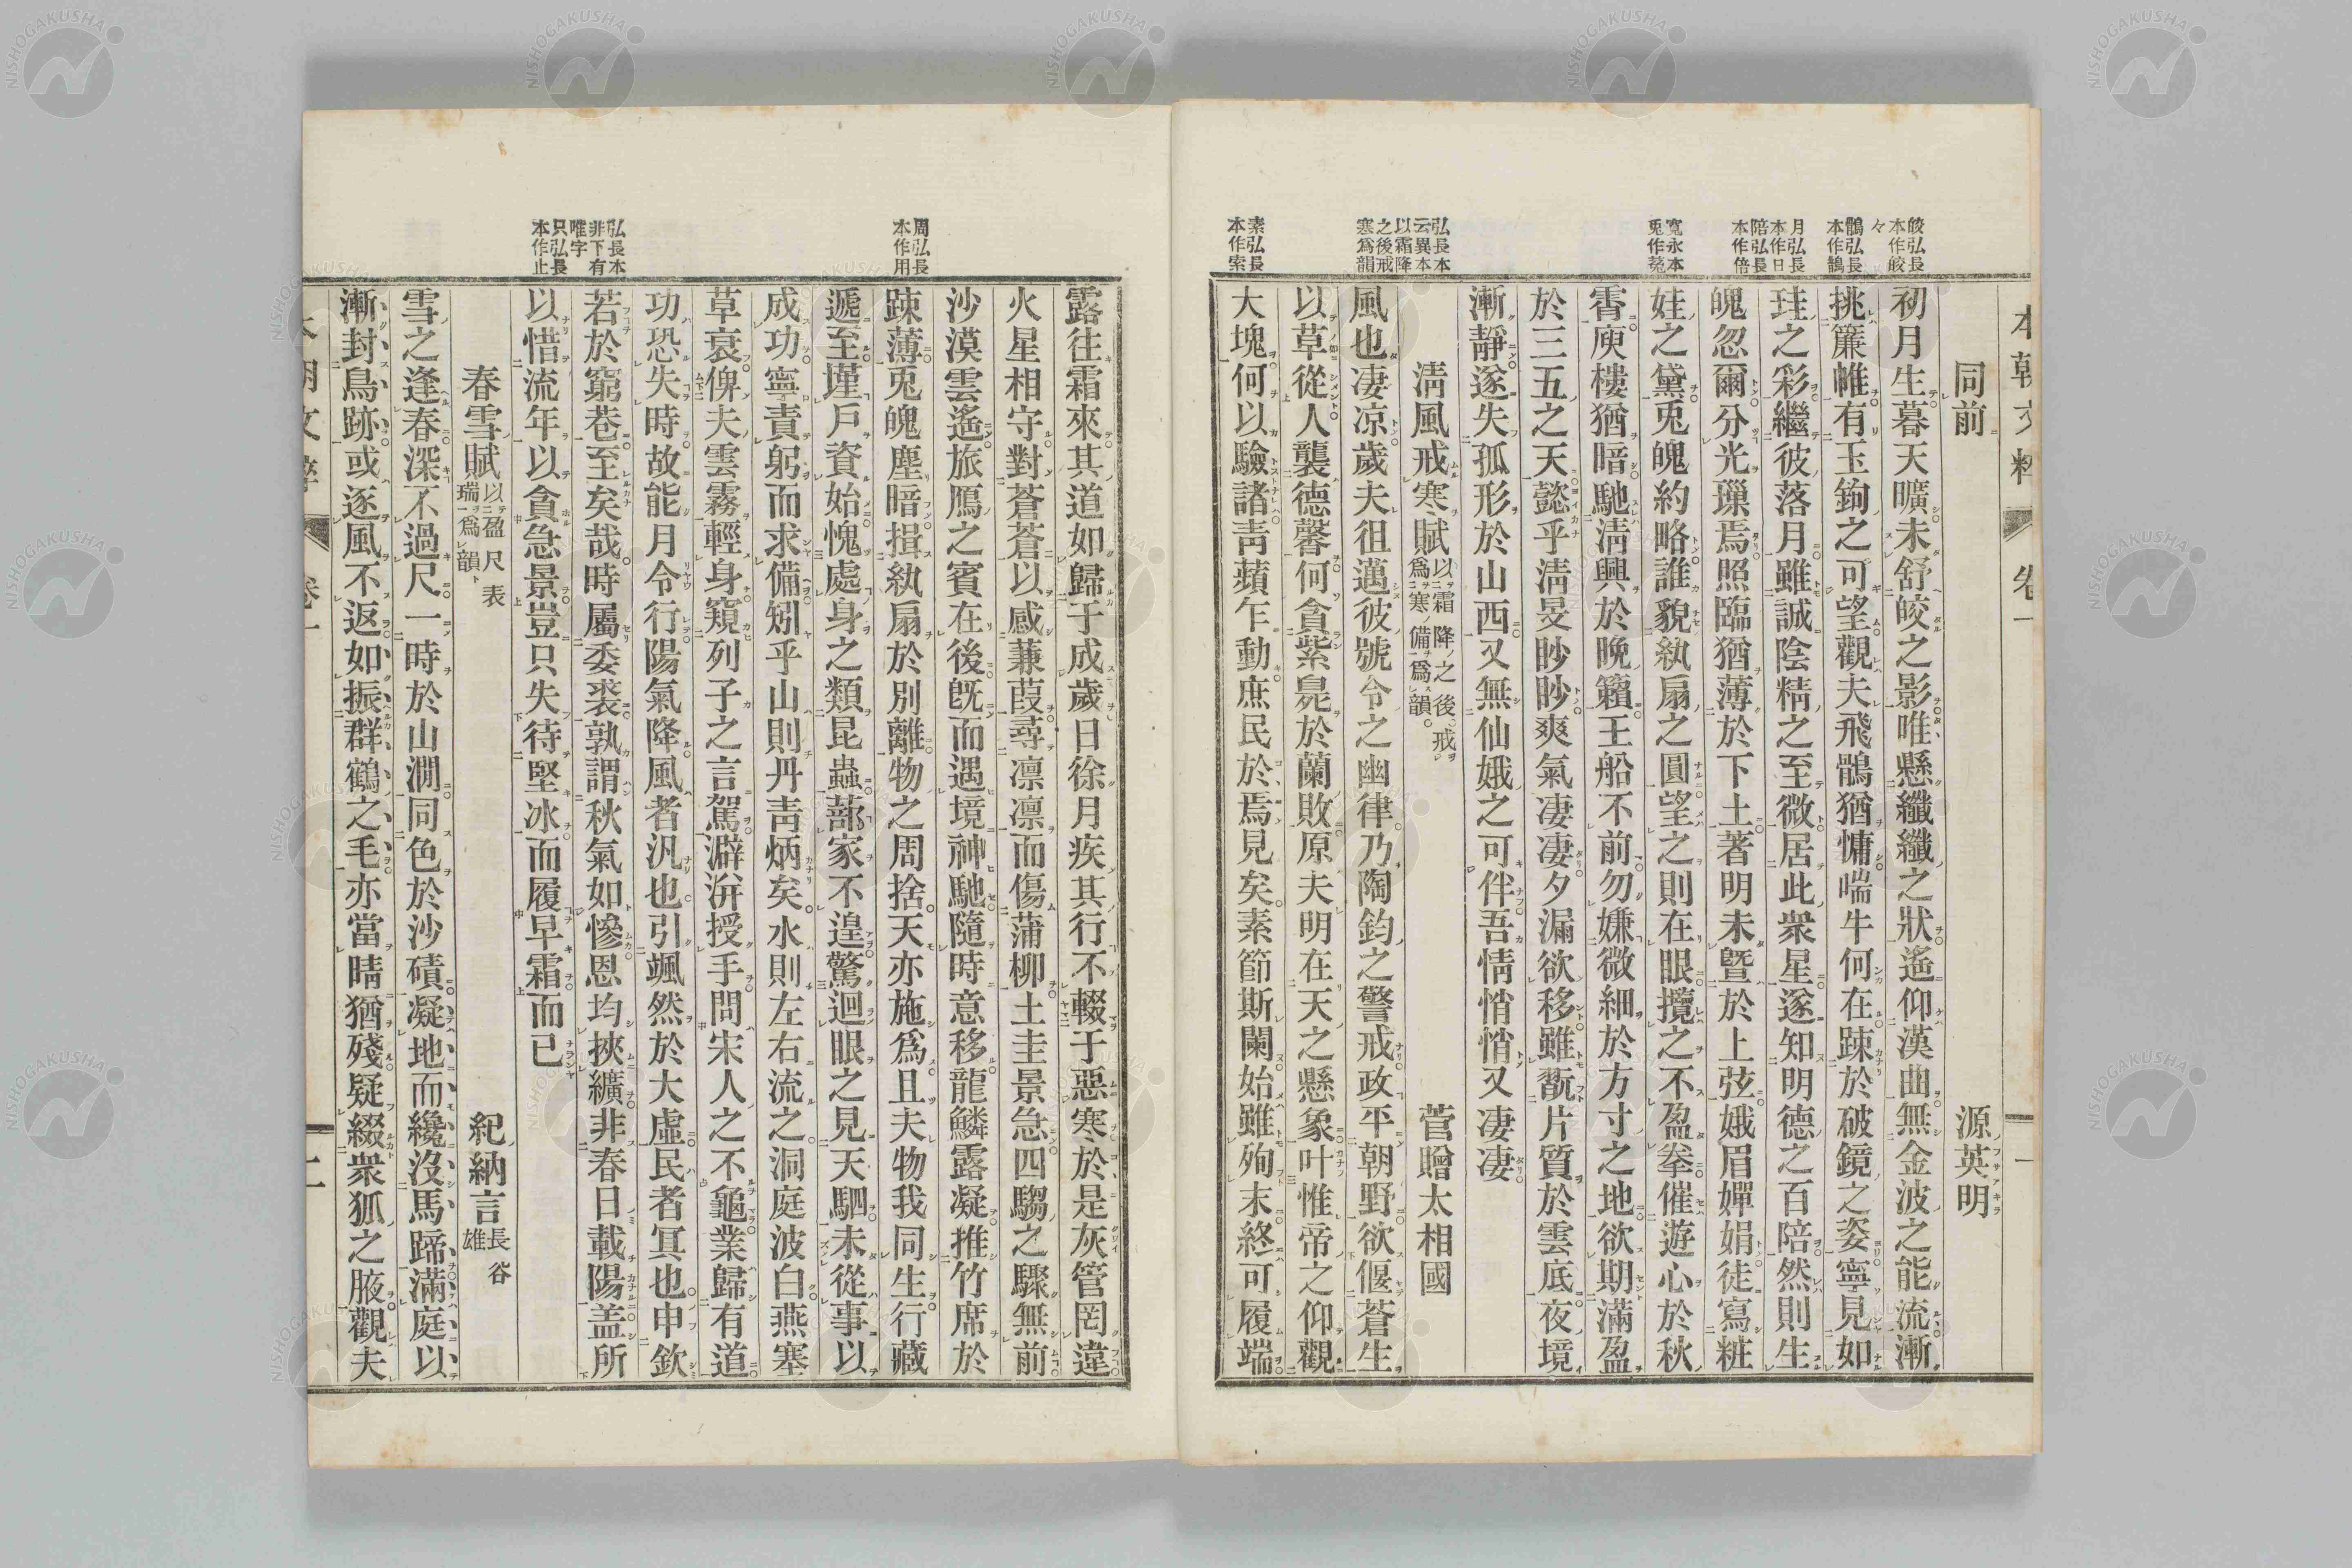 本朝文粹 卷一 一
皎弘長
本作皎
々
鶻弘長
本作鵲
月弘長
本作日
陪弘長
本作倍
寬永本
兎作菟
弘長本
云異本
以霜降
之後戒
寒爲韻
素弘長
本作索
同前 源英明
初月生暮天曠未舒皎之影唯懸纖纖之狀遙仰漢曲無金波之能流漸
挑簾帷有玉鉤之可望觀夫飛鶻猶慵喘牛何在踈於破鏡之姿寧見如
珪之彩繼彼落月雖誠陰精之至微居此衆星遂知明德之百陪然則生
魄忽爾分光璅焉照臨猶薄於下土著明未曁於上弦娥眉嬋娟徒寫粧
娃之黛兎魄約略誰貌紈扇之圓望之則在眼攬之不盈拳催遊心於秋
霄庾樓猶暗馳淸興於晩籟王船不前勿嫌微細於方寸之地欲期滿盈
於三五之天懿乎淸旻眇眇爽氣凄凄夕漏欲移雖翫片質於雲底夜境
漸靜遂失孤形於山西又無仙娥之可伴吾情悄悄又凄凄
淸風戒寒賦 以霜降之後戒寒備爲韻 菅贈太相國
風也凄凉歲夫徂邁彼號令之幽律乃陶鈞之警戒政平朝野欲偃蒼生
以草從人襲德馨何貪紫㲋於蘭敗原夫明在天之懸象叶惟帝之仰觀
大塊何以驗諸靑蘋乍動庶民於焉見矣素節斯闌始雖殉末終可履端
周弘長
本作用
弘長本
非下有
唯字
只弘長
本作止
露往霜來其道如歸于成歲日徐月疾其行不輟于惡寒於是灰管罔違
火星相守對蒼蒼以感蒹葭尋凛凛而傷蒲柳土圭景急四騶之驟無前
沙漠雲遙旅鴈之賓在後旣而遇境神馳隨時意移龍鱗露凝推竹席於
踈薄兎魄塵暗揖紈扇於別離物之周捨天亦施爲且夫物我同生行藏
遞至墐戶資始愧處身之類昆蟲蔀家不遑驚迴眼之見天駟未從事以
成功寧責躬而求備矧乎山則丹靑炳矣水則左右流之洞庭波白燕塞
草衰俾夫雲霧輕身窺列子之言駕澼洴授手問宋人之不龜業歸有道
功恐失時故能月令行陽氣降風者汎也引颯然於大虛民者冥也申欽
若於窮巷至矣哉時屬委裘孰謂秋氣如慘恩均挾纊非春日載陽盖所
以惜流年以貪急景豈只失待堅冰而履早霜而已
春雪賦 以盈尺表瑞爲韻 紀納言 長谷雄
雪之逢春深不過尺一時於山澗同色於沙磧凝地而纔沒馬蹄滿庭以
漸封鳥跡或逐風不返如振群鶴之毛亦當晴猶殘疑綴衆狐之腋觀夫
本朝文粹 卷一 二